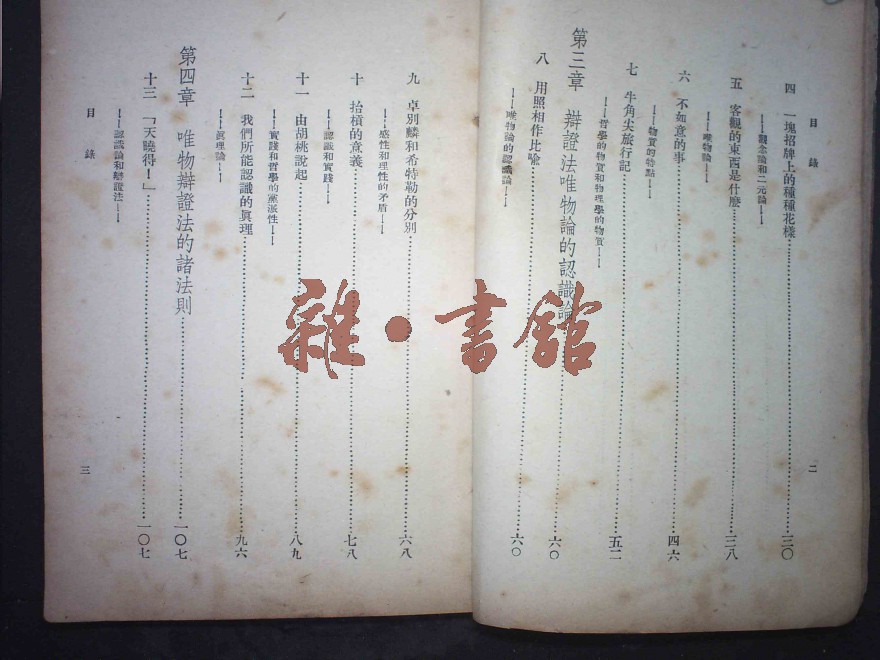 目錄
四 一塊招牌上的種種花樣……三〇
——觀念論和二元論——
五 客觀的東西是什麼……三八
——唯物論——
六 不如意的事……四六
——物質的特點——
七 牛角尖旅行記……五二
——哲學的物質和物理學的物質——
第三章 辯證法唯物論的認識論……六〇
八 用照相作比喻……六〇
——唯物論的認識論——
二
九 卓別麟和希特勒的分別……六八
——感性和理性的矛盾——
十 抬槓的意義……七八
——認識和實踐——
十一 由胡桃說起……八九
——實踐和哲學的黨派性——
十二 我們所能認識的真理……九六
——眞理論——
第四章 唯物辯證法的諸法則……一〇七
十三 「天曉得！」……一〇七
——認識論和辯證法——
目錄
三
雜·書館